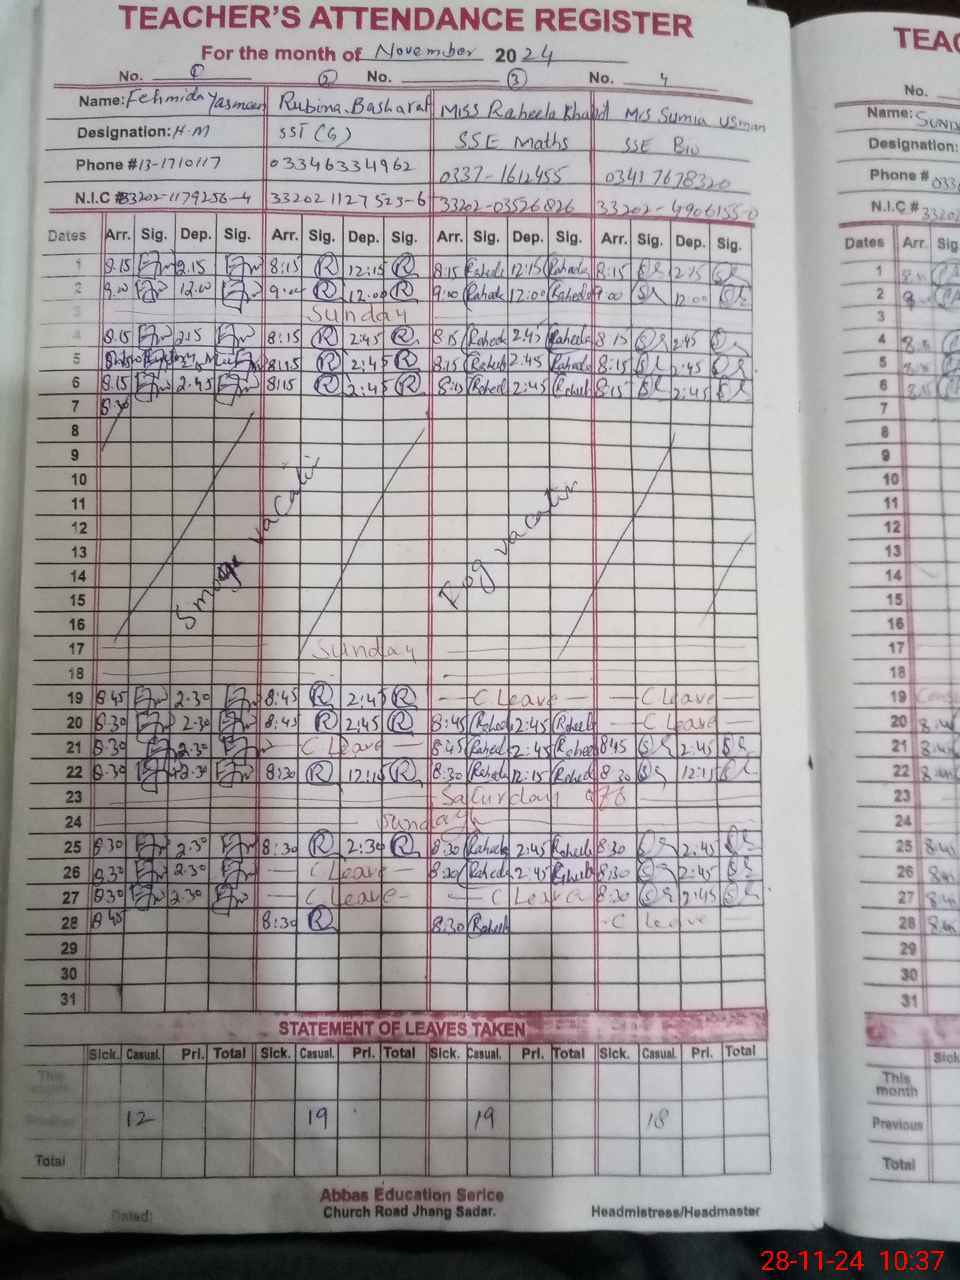 TEACHER'S ATTENDANCE REGISTER
For the month of November 2024
No. 1 2 No. 3 No. 4
Name: Fehmida Yasmeen Rubina Basharat Miss Raheela Khalid Mrs Sumia Usman
Designation: H.M SST (G) SSE Maths SSE Bio
Phone #13-1710117 03346334962 0337-1612455 03417678320
N.I.C #33202-1179256-4 33202 1127523-6 33202-03526826 33202-4906155-0
Dates Arr. Sig. Dep. Sig. Arr. Sig. Dep. Sig. Arr. Sig. Dep. Sig. Arr. Sig. Dep. Sig.
1 8.15 2.15 8:15 R 12:15 R 8:15 Raheela 12:15 Raheela 8:15 12:15
2 9.00 12.00 9:00 R 12:00 R 9:00 Raheela 12:00 Raheela 9:00 12:00
3 Sunday
4 8.15 2.15 8:15 R 2:45 R 8:15 Raheela 2:45 Raheela 8:15 2:45
5 8:15 R 2:45 R 8:15 Raheela 2:45 Raheela 8:15 2:45
6 8.15 2.45 8:15 R 2:45 R 8:15 Raheela 2:45 Raheela 8:15 2:45
7 8.30
8
9
10
11
12
13
14
15
16
Smoge vacatin
Fog vacatin
17 Sunday
18
19 8.45 2.30 8:45 R 2:45 R C Leave C Leave
20 8.30 2.30 8:45 R 2:45 R 8:45 Raheela 2:45 Raheela C Leave
21 8.30 2.30 C Leave 8:45 Raheela 2:45 Raheela 8:45 2:45
22 8.30 8:30 R 12:15 R 8:30 Raheela 12:15 Raheela 8:30 12:15
23 Saturday off
24 Sunday
25 8.30 2.30 8:30 R 2:30 R 8:30 Raheela 2:45 Raheela 8:30 2:45
26 8.30 2.30 C Leave 8:30 Raheela 2:45 Raheela 8:30 2:45
27 8.30 2.30 C Leave C Leave 8:30 2:45
28 8.45 8:30 R 8:30 Raheela C leave
29
30
31
STATEMENT OF LEAVES TAKEN
Sick. Casual. Pri. Total Sick. Casual. Pri. Total Sick. Casual. Pri. Total Sick. Casual. Pri. Total
This month
Previous 12 19 19 18
Total
Abbas Education Serice
Church Road Jhang Sadar.
Dated: Headmistress/Headmaster
TEAC
No.
Name:
Designation:
Phone # 033
N.I.C # 33202
Dates Arr. Sig
1
2
3
4
5
6
7
8
9
10
11
12
13
14
15
16
17
18
19
20
21
22
23
24
25
26
27
28
29
30
31
Sick
This month
Previous
Total
28-11-24 10:37